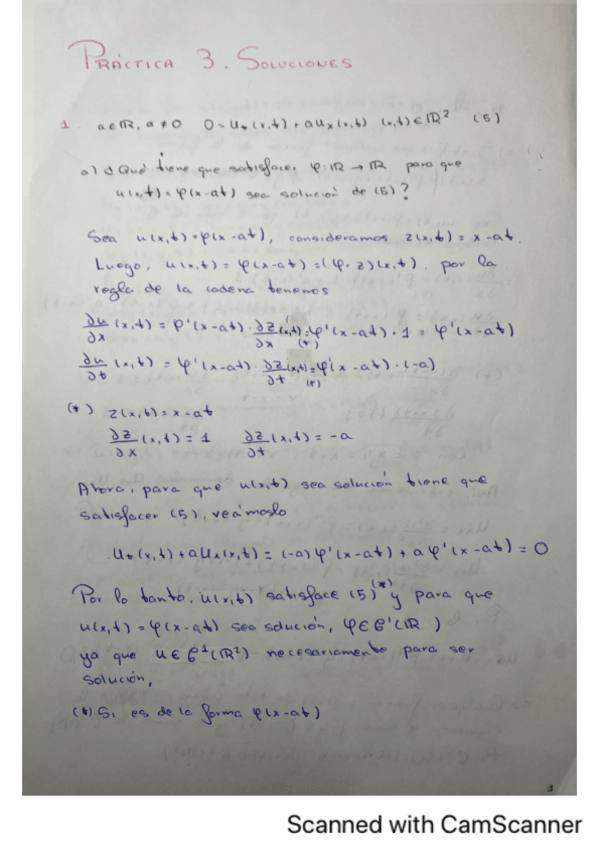 PRÁCTICA 3. SOLUCIONES
1 a∈ℝ, a≠0 0=u_t(x,t)+au_x(x,t) (x,t)∈ℝ² (5)
a) ¿Qué tiene que satisfacer φ:ℝ→ℝ para que
u(x,t)=φ(x-at) sea solución de (5)?
Sea u(x,t)=φ(x-at), consideramos z(x,t)=x-at.
Luego, u(x,t)=φ(x-at)=(φ∘z)(x,t). por la
regla de la cadena tenemos
∂u/∂x (x,t) = φ'(x-at)·∂z/∂x (x,t) =(*) φ'(x-at)·1 = φ'(x-at)
∂u/∂t (x,t) = φ'(x-at)·∂z/∂t (x,t) =(*) φ'(x-at)·(-a)
(*) z(x,t)=x-at
∂z/∂x (x,t)=1 ∂z/∂t (x,t)=-a
Ahora, para que u(x,t) sea solución tiene que
satisfacer (5), veámoslo
u_t(x,t)+au_x(x,t)=(-a)φ'(x-at)+aφ'(x-at)=0
Por lo tanto, u(x,t) satisface (5)^(*) y para que
u(x,t)=φ(x-at) sea solución, φ∈C¹(ℝ)
ya que u∈C¹(ℝ²) necesariamente para ser
solución,
(*) Si es de la forma φ(x-at)
1
Scanned with CamScanner